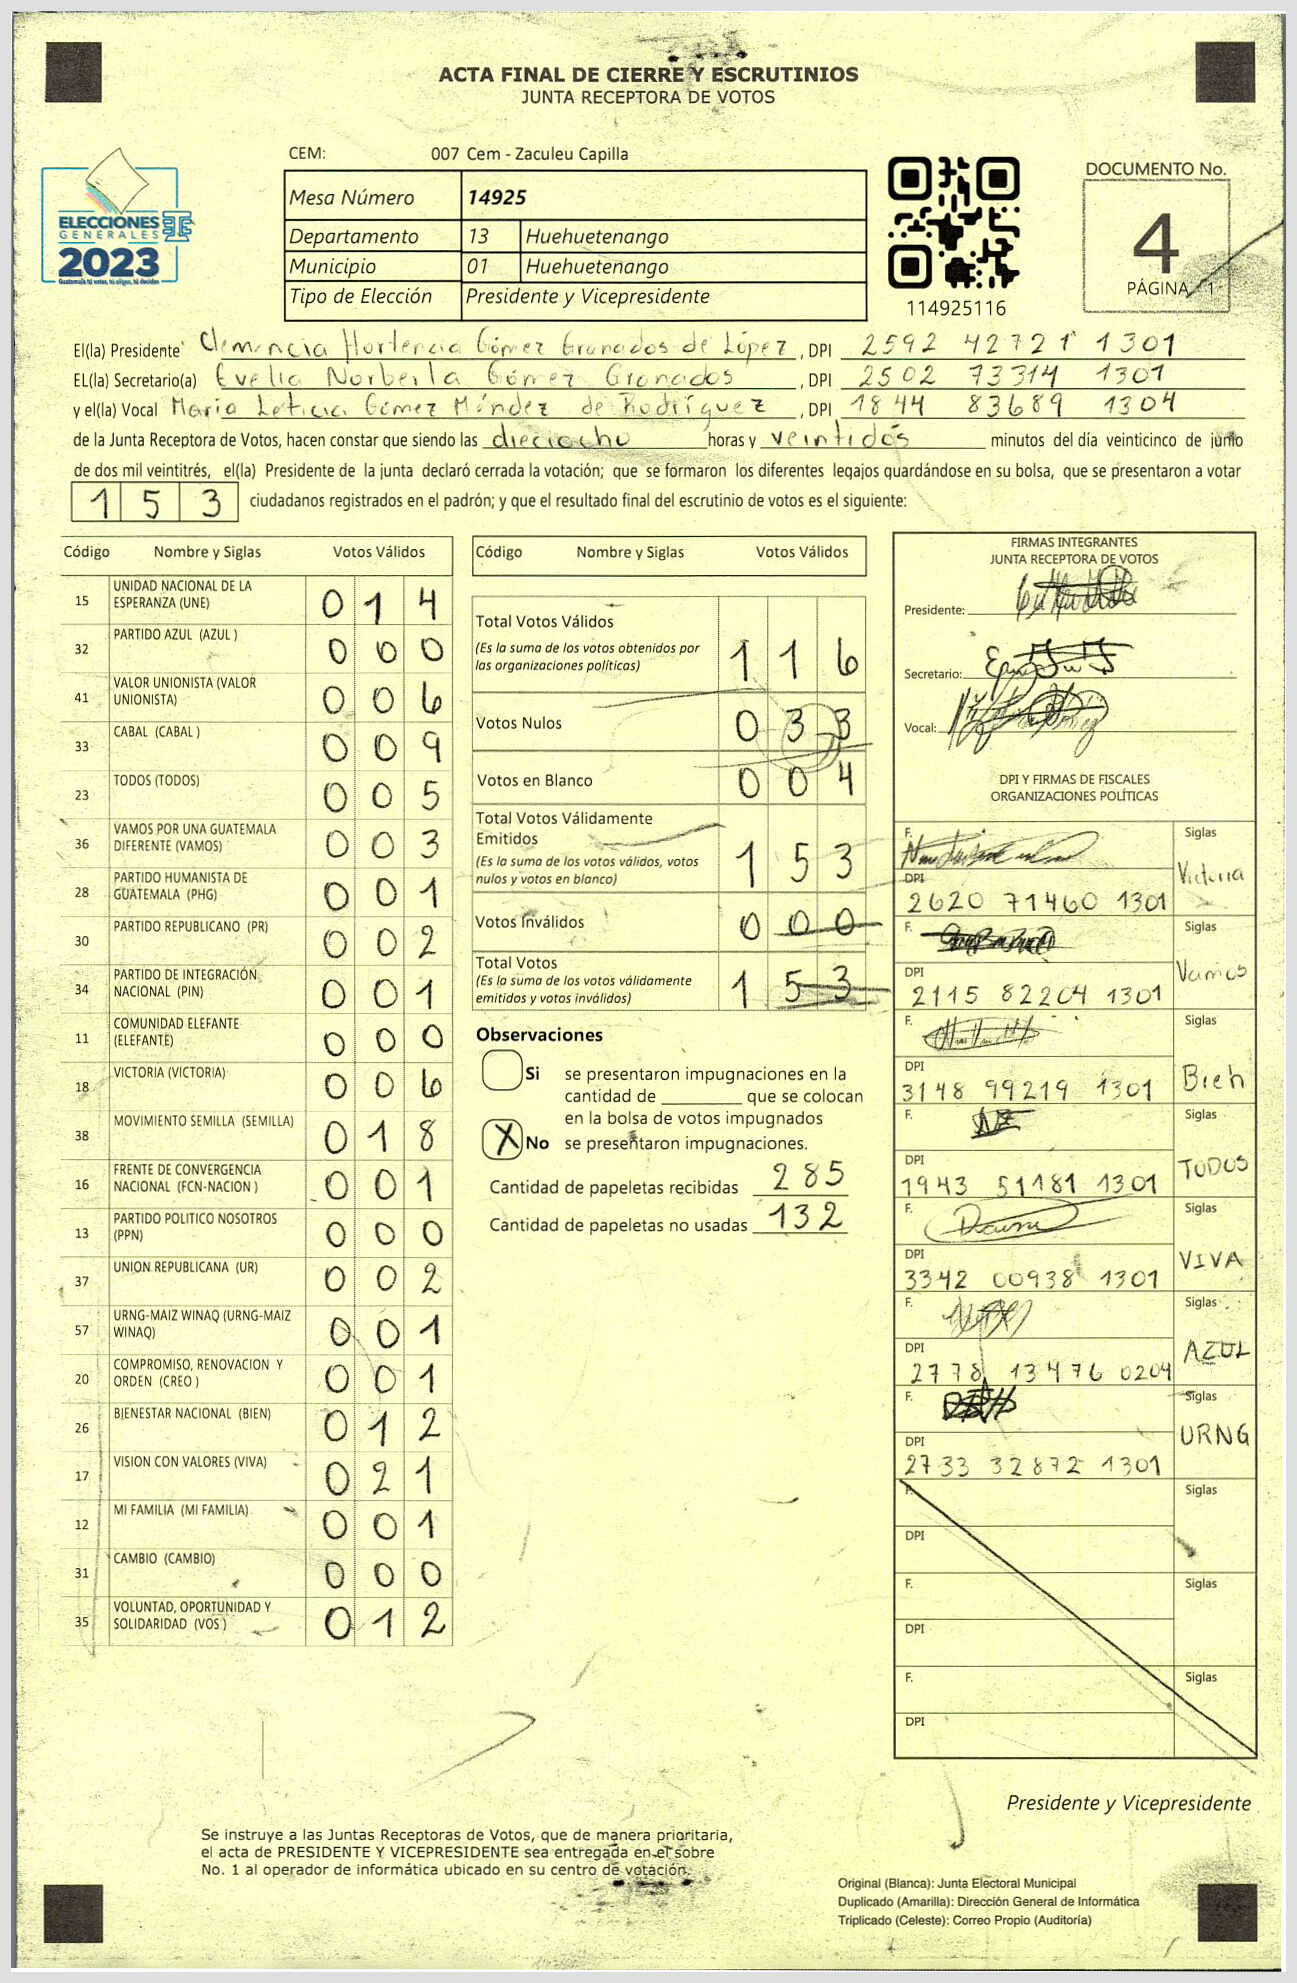 ACTA FINAL DE CIERRE Y ESCRUTINIOS
JUNTA RECEPTORA DE VOTOS
CEM: 007 Cem - Zaculeu Capilla
Mesa Número 14925
Departamento 13 Huehuetenango
Municipio 01 Huehuetenango
Tipo de Elección Presidente y Vicepresidente
ELECCIONES
GENERALES
2023
Guatemala tú votas, tú eliges, tú decides
TSE
114925116
DOCUMENTO No.
4
PÁGINA 1
El(la) Presidente Clemencia Hortencia Gómez Granados de López, DPI 2592 42721 1301
EL(la) Secretario(a) Evelia Norberta Gómez Granados, DPI 2502 73314 1301
y el(la) Vocal María Leticia Gómez Méndez de Rodríguez, DPI 1844 83689 1304
de la Junta Receptora de Votos, hacen constar que siendo las dieciocho horas y veintidós minutos del día veinticinco de junio
de dos mil veintitrés, el(la) Presidente de la junta declaró cerrada la votación; que se formaron los diferentes legajos guardándose en su bolsa, que se presentaron a votar
153 ciudadanos registrados en el padrón; y que el resultado final del escrutinio de votos es el siguiente:
Código Nombre y Siglas Votos Válidos
15 UNIDAD NACIONAL DE LA ESPERANZA (UNE) 014
32 PARTIDO AZUL (AZUL ) 000
41 VALOR UNIONISTA (VALOR UNIONISTA) 006
33 CABAL (CABAL ) 009
23 TODOS (TODOS) 005
36 VAMOS POR UNA GUATEMALA DIFERENTE (VAMOS) 003
28 PARTIDO HUMANISTA DE GUATEMALA (PHG) 001
30 PARTIDO REPUBLICANO (PR) 002
34 PARTIDO DE INTEGRACIÓN NACIONAL (PIN) 001
11 COMUNIDAD ELEFANTE (ELEFANTE) 000
18 VICTORIA (VICTORIA) 006
38 MOVIMIENTO SEMILLA (SEMILLA) 018
16 FRENTE DE CONVERGENCIA NACIONAL (FCN-NACION ) 001
13 PARTIDO POLITICO NOSOTROS (PPN) 000
37 UNION REPUBLICANA (UR) 002
57 URNG-MAIZ WINAQ (URNG-MAIZ WINAQ) 001
20 COMPROMISO, RENOVACION Y ORDEN (CREO ) 001
26 BIENESTAR NACIONAL (BIEN) 012
17 VISION CON VALORES (VIVA) 021
12 MI FAMILIA (MI FAMILIA) 001
31 CAMBIO (CAMBIO) 000
35 VOLUNTAD, OPORTUNIDAD Y SOLIDARIDAD (VOS ) 012
Código Nombre y Siglas Votos Válidos
Total Votos Válidos 116
(Es la suma de los votos obtenidos por
las organizaciones políticas)
Votos Nulos 033
Votos en Blanco 004
Total Votos Válidamente
Emitidos 153
(Es la suma de los votos válidos, votos
nulos y votos en blanco)
Votos Inválidos 000
Total Votos 153
(Es la suma de los votos válidamente
emitidos y votos inválidos)
Observaciones
Si se presentaron impugnaciones en la
cantidad de ________ que se colocan
en la bolsa de votos impugnados
X No se presentaron impugnaciones.
Cantidad de papeletas recibidas 285
Cantidad de papeletas no usadas 132
FIRMAS INTEGRANTES
JUNTA RECEPTORA DE VOTOS
Presidente:
Secretario:
Vocal:
DPI Y FIRMAS DE FISCALES
ORGANIZACIONES POLÍTICAS
F. Siglas
DPI Victoria
2620 71460 1301
F. Siglas
DPI Vamos
2115 82204 1301
F. Siglas
DPI Bien
3148 99219 1301
F. Siglas
DPI TODOS
1943 51181 1301
F. Siglas
DPI VIVA
3342 00938 1301
F. Siglas
DPI AZUL
2778 13476 0204
F. Siglas
DPI URNG
2733 32872 1301
F. Siglas
DPI
F. Siglas
DPI
F. Siglas
DPI
Presidente y Vicepresidente
Se instruye a las Juntas Receptoras de Votos, que de manera prioritaria,
el acta de PRESIDENTE Y VICEPRESIDENTE sea entregada en el sobre
No. 1 al operador de informática ubicado en su centro de votación.
Original (Blanca): Junta Electoral Municipal
Duplicado (Amarilla): Dirección General de Informática
Triplicado (Celeste): Correo Propio (Auditoría)